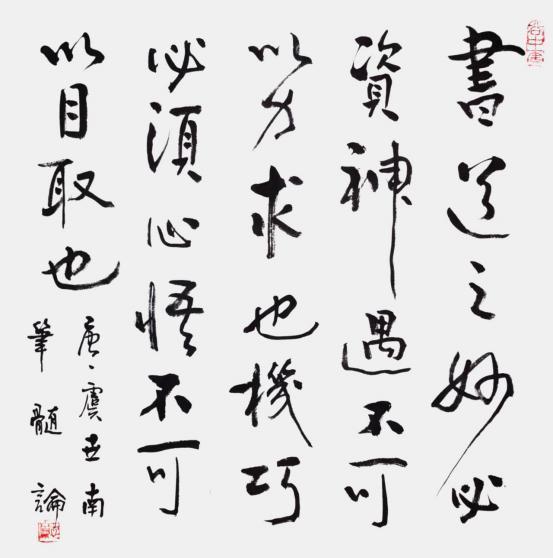 書道之妙必
資神遇不可
以力求也機巧
必須心悟不可
以目取也
唐、虞世南
筆髓論